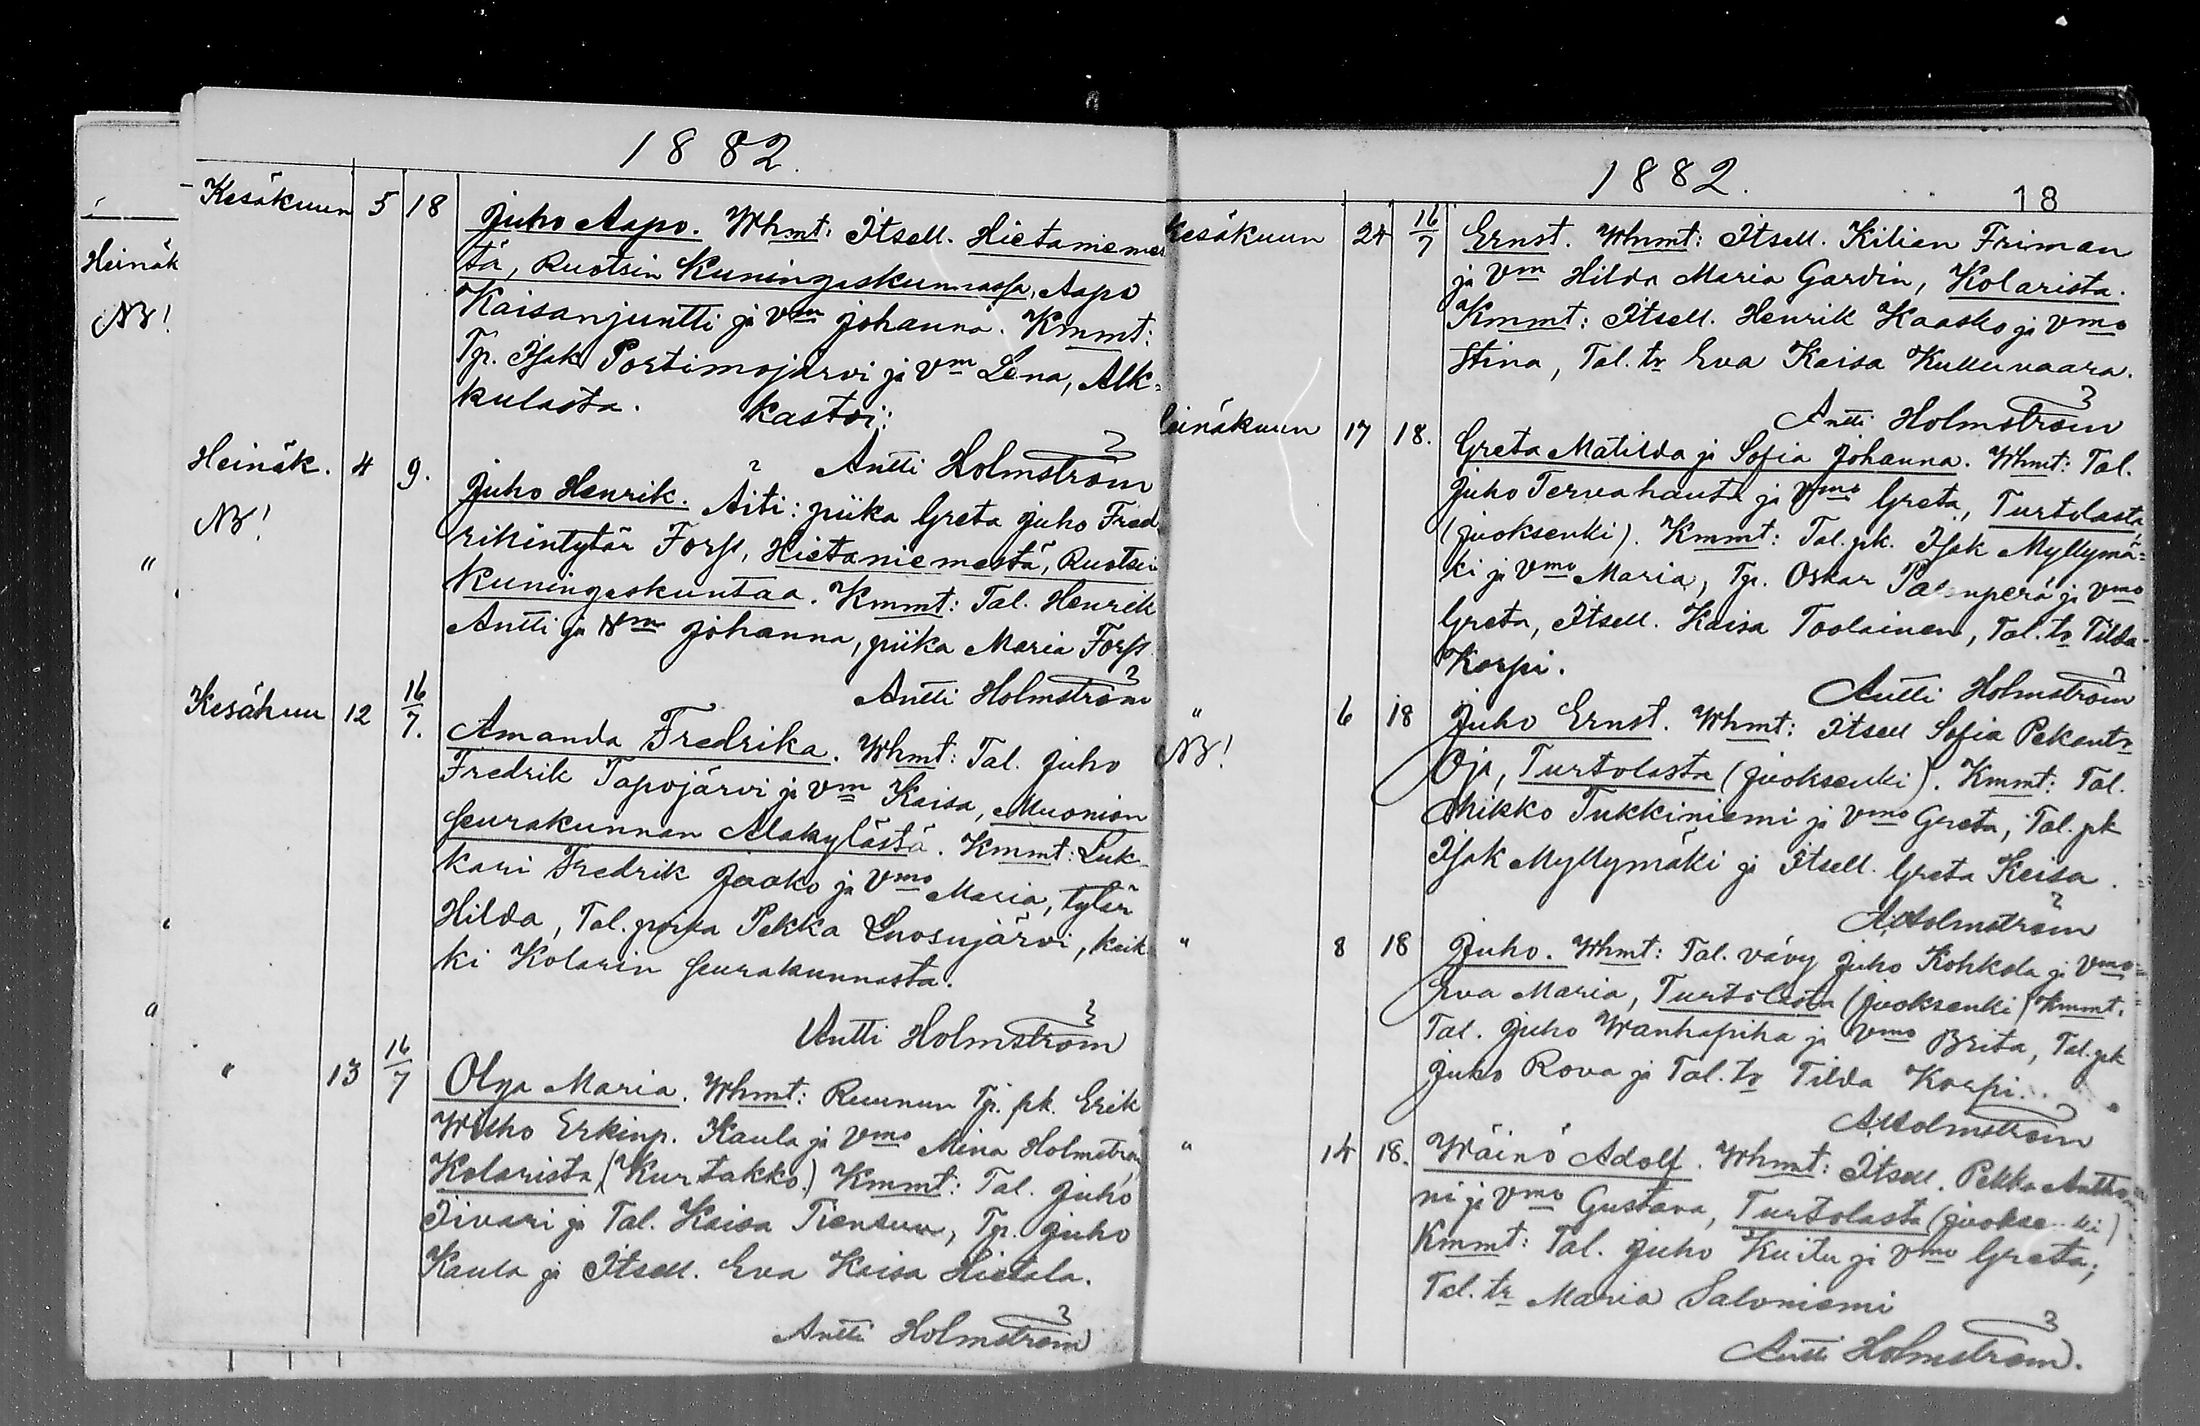 1882.
Kesäkuun 5 18 Juho Aapo. Whmt: Itsell. Hietanieme
tä, Ruotsin Kuningaskunnassa, Aapo
Kaisanjuntti ja Vm Johanna. Kmmt:
Tp. Isak Portimojärvi ja Vm Lena, Alk-
kulasta. Kastoi:
Antti Holmström
Heinäk. 4 9. Juho Henrik. Äiti: piika Greta Juho Fred
NB! rikintytär Forss, Hietaniemestä, Ruotsin
Kuningaskuntaa. Kmmt: Tal. Henrik
Antti ja Vm Johanna, piika Maria Forss
Antti Holmström
Kesäkuu 12 16/7. Amanda Fredrika. Whmt: Tal. Juho
Fredrik Tapojärvi ja Vm Kaisa, Muonion
seurakunnan Alakylästä. Kmmt: Luk-
kari Fredrik Jaako ja Vmo Maria, tytär
Hilda, Tal. poika Pekka Luosujärvi, kaik
ki Kolarin seurakunnasta.
Antti Holmström
" 13 16/7 Olga Maria. Whmt: Ruunun Tp. pk. Erik
Wilho Erkinp. Kaula ja Vmo Mina Holmström,
Kolarista (Kurtakko.) Kmmt: Tal. Juho
Iivari ja Tal. Kaisa Tiensuu, Tp. Juho
Kaula ja Itsell. Eva Kaisa Hietala.
Antti Holmström
Heinäk
NB!
"
1882.
18
Kesäkuun 24 16/7 Ernst. Whmt: Itsell. Kilian Friman
ja Vm Hilda Maria Gardin, Kolarista.
Kmmt: Itsell. Henrik Kaasko ja Vmo
Stina, Tal. tr Eva Kaisa Kullervaara.
Antti Holmström
einäkuun 17 18. Greta Matilda ja Sofia Johanna. Whmt: Tal.
Juho Tervahauta ja Vmo Greta, Turtolasta
(Juoksenki). Kmmt: Tal. pk. Isak Myllymä-
ki ja Vmo Maria, Tp. Oskar Palonperä ja Vmo
Greta, Itsell. Kaisa Toolainen, Tal. tr Tilda
Korpi.
Antti Holmström
" 6 18 Juho Ernst. Whmt: Itsell Sofia Pekantr
NB! Oja, Turtolasta (Juoksenki). Kmmt: Tal.
Mikko Tukkiniemi ja Vmo Greta, Tal. pk
Isak Myllymäki ja Itsell. Greta Keisa.
AHolmström
" 8 18 Juho. Whmt: Tal. vävy Juho Kohkola ja Vmo
Eva Maria, Turtolasta (Juoksenki) Kmmt.
Tal. Juho Wanhapiha ja Vmo Brita, Tal. pk
Juho Rova ja Tal. tr Tilda Korpi.
AHolmström
" 14 18. Wäinö Adolf. Whmt: Itsell. Pekka Antto
ni ja Vmo Gustava, Turtolasta (Juokse ki)
Kmmt: Tal. Juho Kuitu ja Vmo Greta;
Tal. tr Maria Saloniemi
Antti Holmström.